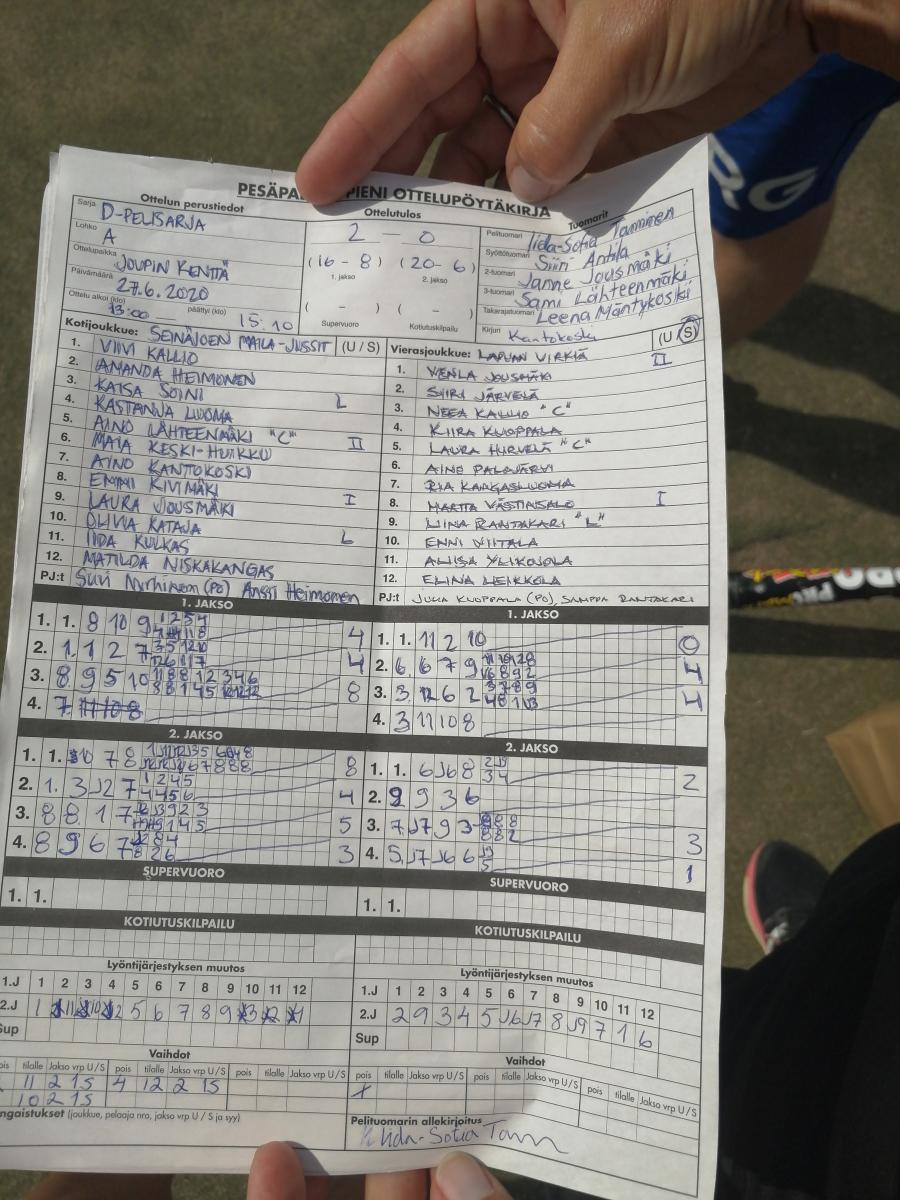 PESÄPA PIENI OTTELUPÖYTÄKIRJA
Ottelun perustiedot
Sarja D-PELISARJA
Lohko A
Ottelupaikka JOUPIN KENTTÄ
Päivämäärä 27.6.2020
Ottelu alkoi (klo) 13:00 päättyi (klo) 15:10
Ottelutulos
2 - 0
(16 - 8) (20 - 6)
1. jakso 2. jakso
( - ) ( - )
Supervuoro Kotiutuskilpailu
Tuomarit
Pelituomari Iida-Sofia Tanninen
Syöttötuomari Siiri Antila
2-tuomari Janne Jousmäki
3-tuomari Sami Lähteenmäki
Takarajatuomari Leena Mäntykoski
Kirjuri Kantokoski
Kotijoukkue: SEINÄJOEN MAILA-JUSSIT (U / S)
1. VIIVI KALLIO
2. AMANDA HEIMONEN
3. KAISA SOINI
4. KASTANJA LUOMA L
5. AINO LÄHTEENMÄKI "C"
6. MAIA KESKI-HUIKKU II
7. AINO KANTOKOSKI
8. EMMI KIVIMÄKI
9. LAURA JOUSMÄKI I
10. OLIVIA KATAJA
11. IIDA KULKAS L
12. MATILDA NISKAKANGAS
PJ:t Suvi Myrhinen (PO) Anssi Heimonen
Vierasjoukkue: LAPUAN VIRKIÄ (U / S)
1. VENLA JOUSMÄKI II
2. SIIRI JÄRVELÄ
3. NEEA KALLIO "C"
4. KIIRA KUOPPALA
5. LAURA HIRVELÄ "C"
6. AINO PALOJÄRVI
7. RIA KANGASLUOMA
8. MARTTA VÄSTINSALO I
9. LIINA RANTAKARI "L"
10. ENNI VIITALA
11. ALIISA YLIKOJOLA
12. ELINA LEIKKOLA
PJ:t JUHA KUOPPALA (PO), SAMPPA RANTAKARI
1. JAKSO
1. 1. 8 10 9 4
2. 1. 1 2 7 4
3. 8 9 5 10 8
4. 7.
1. JAKSO
1. 1. 11 2 10 0
2. 6. 6 7 9 4
3. 3. 12 6 2 4
4. 3 11 10 8
2. JAKSO
1. 1. 10 7 8 8
2. 1. 3 J2 7 4
3. 8 8 1 7 5
4. 8 9 6 7 3
2. JAKSO
1. 1. 6 J6 8 2
2. 9 9 3 6
3. 7. J7 9 3 3
4. 5. J7 J6 6 1
SUPERVUORO
1. 1.
SUPERVUORO
1. 1.
KOTIUTUSKILPAILU
KOTIUTUSKILPAILU
Lyöntijärjestyksen muutos
1.J 1 2 3 4 5 6 7 8 9 10 11 12
2.J 1 5 6 7 8 9
Sup
Lyöntijärjestyksen muutos
1.J 1 2 3 4 5 6 7 8 9 10 11 12
2.J 2 9 3 4 5 J6 J7 8 J9 7 1 6
Sup
Vaihdot
ois tilalle Jakso vrp U / S pois tilalle Jakso vrp U / S pois tilalle Jakso vrp U / S
11 2 1S 4 12 2 1S
10 2 1S
ngaistukset (joukkue, pelaaja nro, jakso vrp U / S ja syy)
Vaihdot
pois tilalle Jakso vrp U / S pois tilalle Jakso vrp U / S pois tilalle Jakso vrp U / S
Pelituomarin allekirjoitus
RG